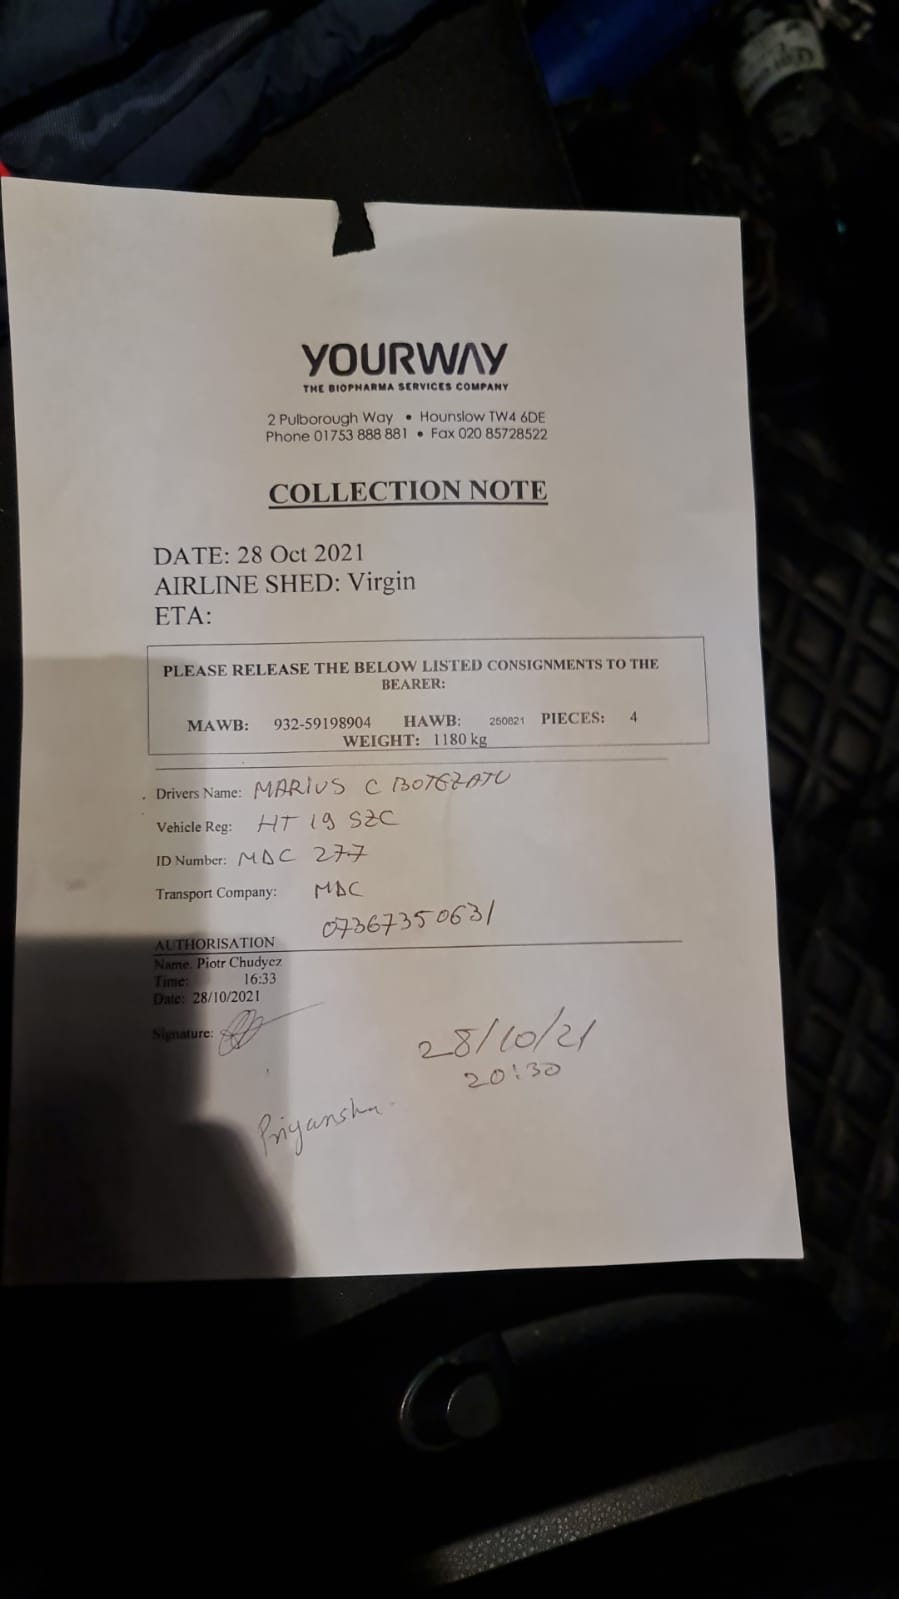 YOURWAY
THE BIOPHARMA SERVICES COMPANY
2 Pulborough Way • Hounslow TW4 6DE
Phone 01753 888 881 • Fax 020 85728522
COLLECTION NOTE
DATE: 28 Oct 2021
AIRLINE SHED: Virgin
ETA:
PLEASE RELEASE THE BELOW LISTED CONSIGNMENTS TO THE
BEARER:
MAWB: 932-59198904 HAWB: 250821 PIECES: 4
WEIGHT: 1180 kg
Drivers Name: MARIUS C BOTEZATU
Vehicle Reg: HT 19 SZC
ID Number: MDC 277
Transport Company: MDC
07367350631
AUTHORISATION
Name: Piotr Chudycz
Time: 16:33
Date: 28/10/2021
Signature:
28/10/21
20:30
Priyanshu